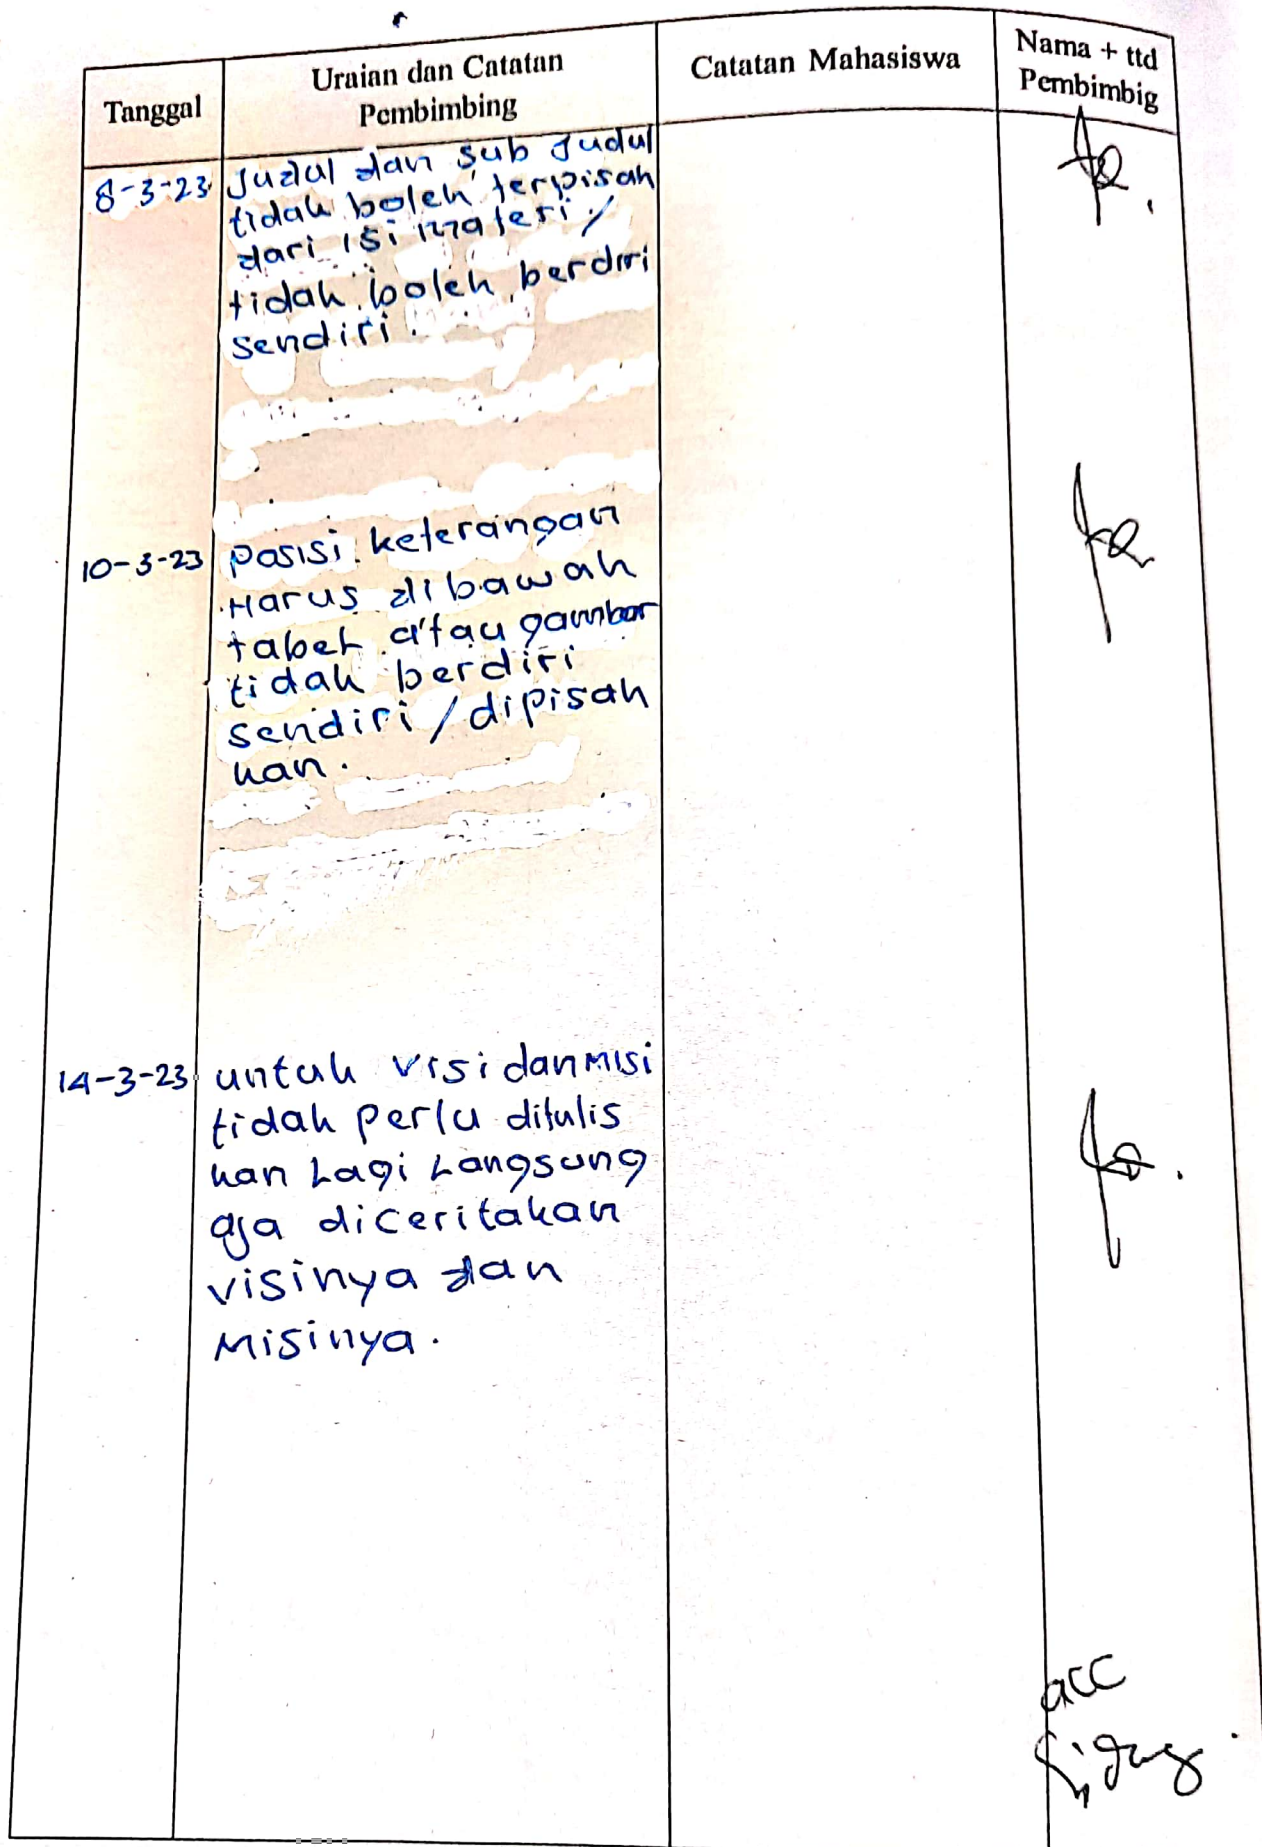 Tanggal
Uraian dan Catatan
Pembimbing
Catatan Mahasiswa
Nama + ttd
Pembimbig
8-3-23
Judul dan sub Judul
tidak boleh terpisah
dari isi materi /
tidak boleh berdiri
sendiri.
10-3-23
Posisi keterangan
Harus dibawah
tabel atau gambar
tidak berdiri
sendiri / dipisah
kan.
14-3-23
untuk visi dan Misi
tidak perlu ditulis
kan Lagi Langsung
aja diceritakan
visinya dan
Misinya.
acc
Sidang